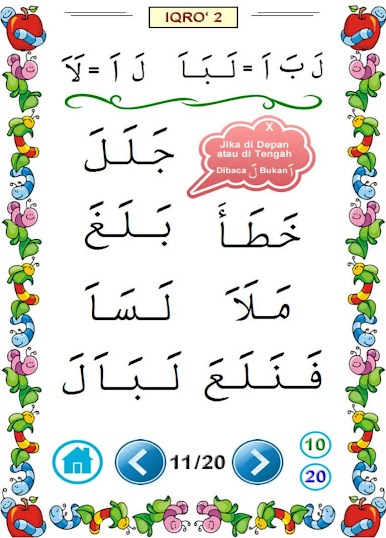 IQRO' 2
لَ بَ اَ = لَـبَـاَ لَ اَ = لَاَ
X
Jika di Depan
atau di Tengah
Dibaca لَ Bukan اَ
جَـلَـلَ
خَـطَـأَ بَـلَـغَ
مَـلَاَ لَـسَـاَ
فَـنَـلَـعَ لَـبَـاَلَ
11/20
10
20